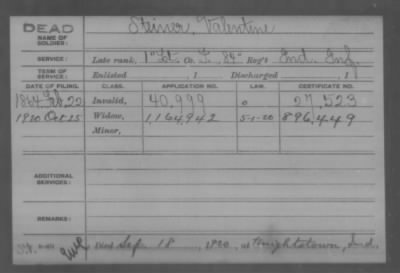 DEAD
NAME OF SOLDIER: Steiner, Valentine
SERVICE: Late rank, 1" Lt. Co. F, 84" Reg't Ind. Inf.
TERM OF SERVICE: Enlisted , 1 Discharged , 1
DATE OF FILING. CLASS. APPLICATION NO. LAW. CERTIFICATE NO.
1864 Feb. 22 Invalid, 40,999 o 27,523
1920 Oct 25 Widow, 1,164,942 5-1-20 896,449
Minor,
ADDITIONAL SERVICES:
REMARKS:
Died Sep. 18 , 1920, at Knightstown, Ind.